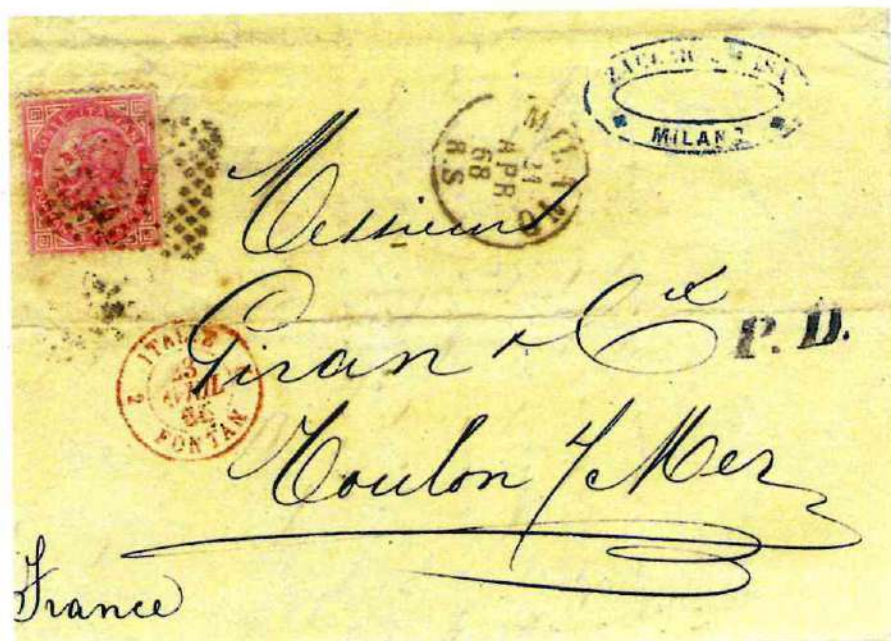 MILANO
MILANO
21
APR
68
8.S
Messieurs
Giran & Cie
P. D.
2 ITALIE
AVRIL
FONTAN
Toulon s/Mer
France